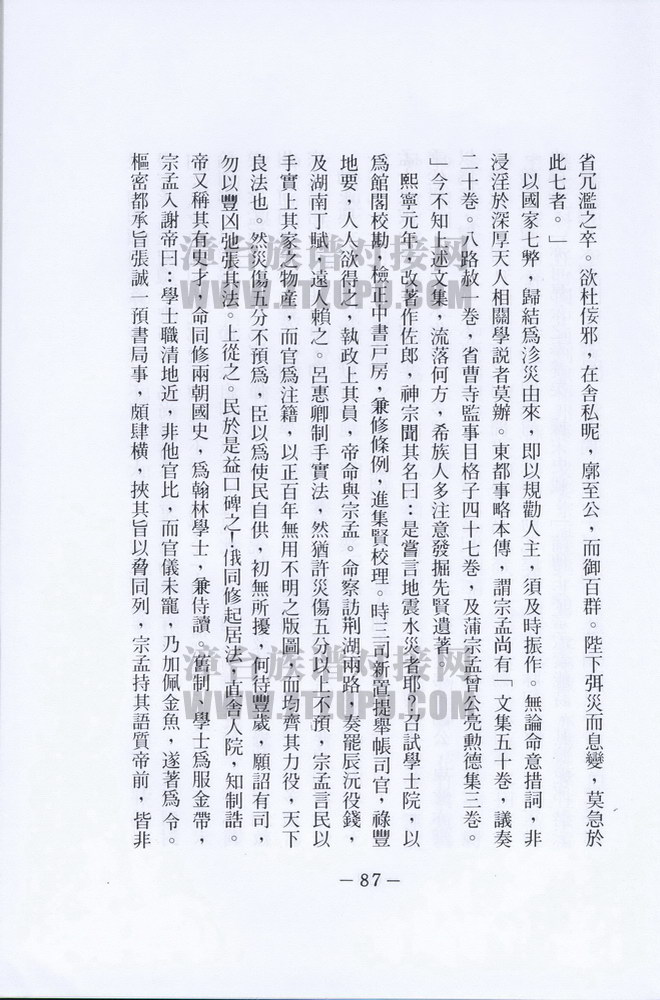 省冗濫之卒。欲杜倿邪，在舍私呢，廓至公，而御百群。陛下弭災而息變，莫急於
此七者。」
以國家七弊，歸結爲沴災由來，即以規勸人主，須及時振作。無論命意措詞，非
浸淫於深厚天人相關學説者莫辦。東都事略本傳，謂宗孟尚有「文集五十巻，議奏
二十巻。八路赦一巻，省曹寺監事目格子四十七巻，及蒲宗孟曾公亮勲德集三巻。
」今不知上述文集，流落何方，希族人多注意發掘先賢遺著。
熙寧元年，改著作佐郎，神宗聞其名曰：是嘗言地震水災者耶，召試學士院，以
爲館閣校勘，檢正中書戸房，兼修條例，進集賢校理。時三司新置提舉帳司官，祿豐
地要，人人欲得之，執政上其員，帝命與宗孟。命察訪荆湖兩路，奏罷辰沅役錢，
及湖南丁賦，遠人賴之。呂惠卿制手實法，然猶許災傷五分以上不預，宗孟言民以
手實上其家之物産，而官爲注籍，以正百年無用不明之版圖，而均齊其力役，天下
良法也。然災傷五分不預爲，臣以爲使民自供，初無所擾，何待豐歲，願詔有司，
勿以豐凶弛張其法。上從之。民於是益口碑之！俄同修起居法，直舍人院，知制誥。
帝又稱其有史才，命同修兩朝國史，爲翰林學士，兼侍讀。舊制，學士爲服金帶，
宗孟入謝帝曰：學士職清地近，非他官比，而官儀未寵，乃加佩金魚，遂著爲令。
樞密都承旨張誠一預書局事，頗肆橫，挾其旨以脅同列，宗孟持其語質帝前，皆非
－87－
漳台族谱对接网
WWW.ZTZUPU.COM
漳台族谱对接网
WWW.ZTZUPU.COM